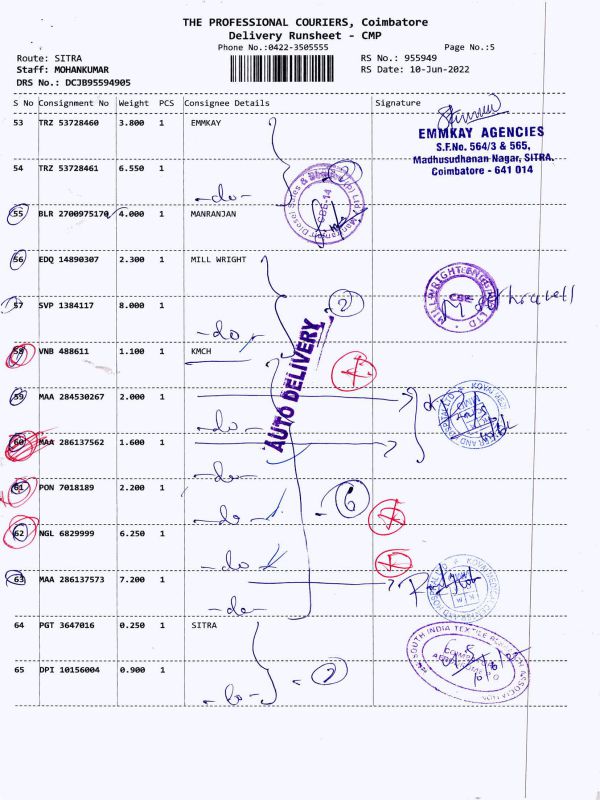 THE PROFESSIONAL COURIERS, Coimbatore
Delivery Runsheet - CMP
Phone No.:0422-3505555 Page No.:5
Route: SITRA RS No.: 955949
Staff: MOHANKUMAR RS Date: 10-Jun-2022
DRS No.: DCJB95594905
S No Consignment No Weight PCS Consignee Details Signature
53 TRZ 53728460 3.800 1 EMMKAY
EMMKAY AGENCIES
S.F.No. 564/3 & 565,
Madhusudhanan Nagar, SITRA.
Coimbatore - 641 014
54 TRZ 53728461 6.550 1
-do- 2
55 BLR 2700975170 4.000 1 MANRANJAN
CBE-14
56 EDQ 14890307 2.300 1 MILL WRIGHT
57 SVP 1384117 8.000 1
-do- 2
CBE
AUTO DELIVERY
58 VNB 488611 1.100 1 KMCH
59 MAA 284530267 2.000 1
-do-
60 MAA 286137562 1.600 1
-do-
61 PON 7018189 2.200 1
-do- 6
62 NGL 6829999 6.250 1
-do-
63 MAA 286137573 7.200 1
-do-
64 PGT 3647016 0.250 1 SITRA
SOUTH INDIA TEXTILE RESEARCH ASSOCIATION
65 DPI 10156004 0.900 1
-do- 2